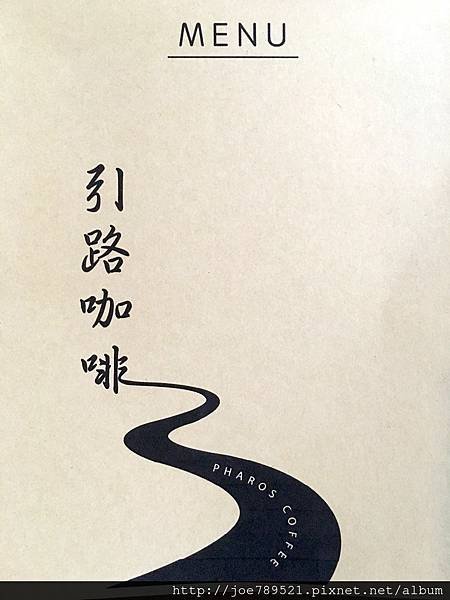 MENU
引路咖啡
PHAROS COFFEE
http://joe789521.pixnet.net/album